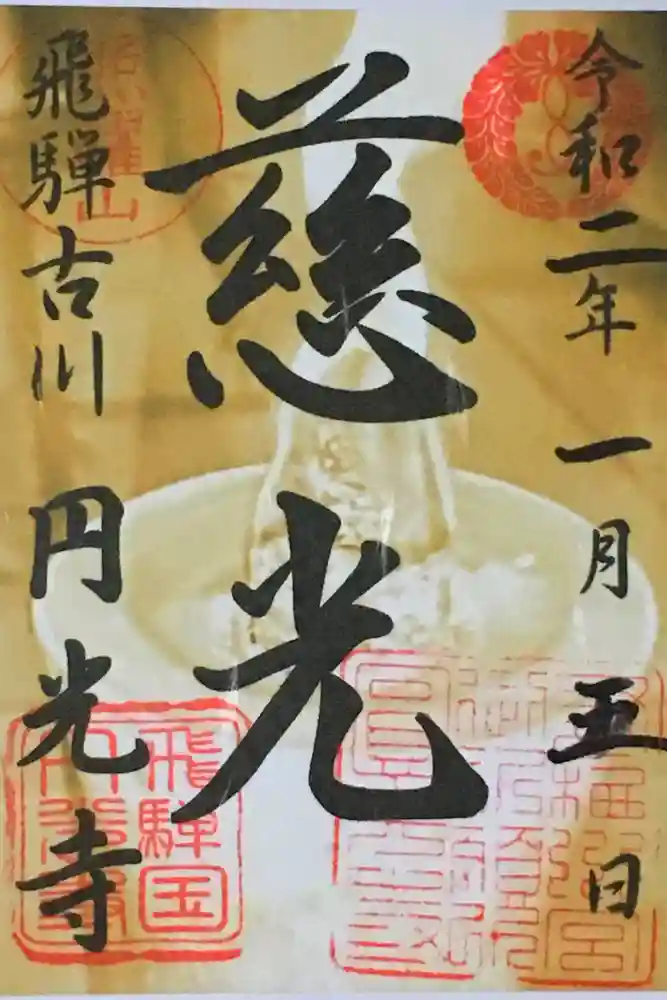 令和二年一月五日
慈光
飛騨古川 円光寺
飛騨国
円光寺